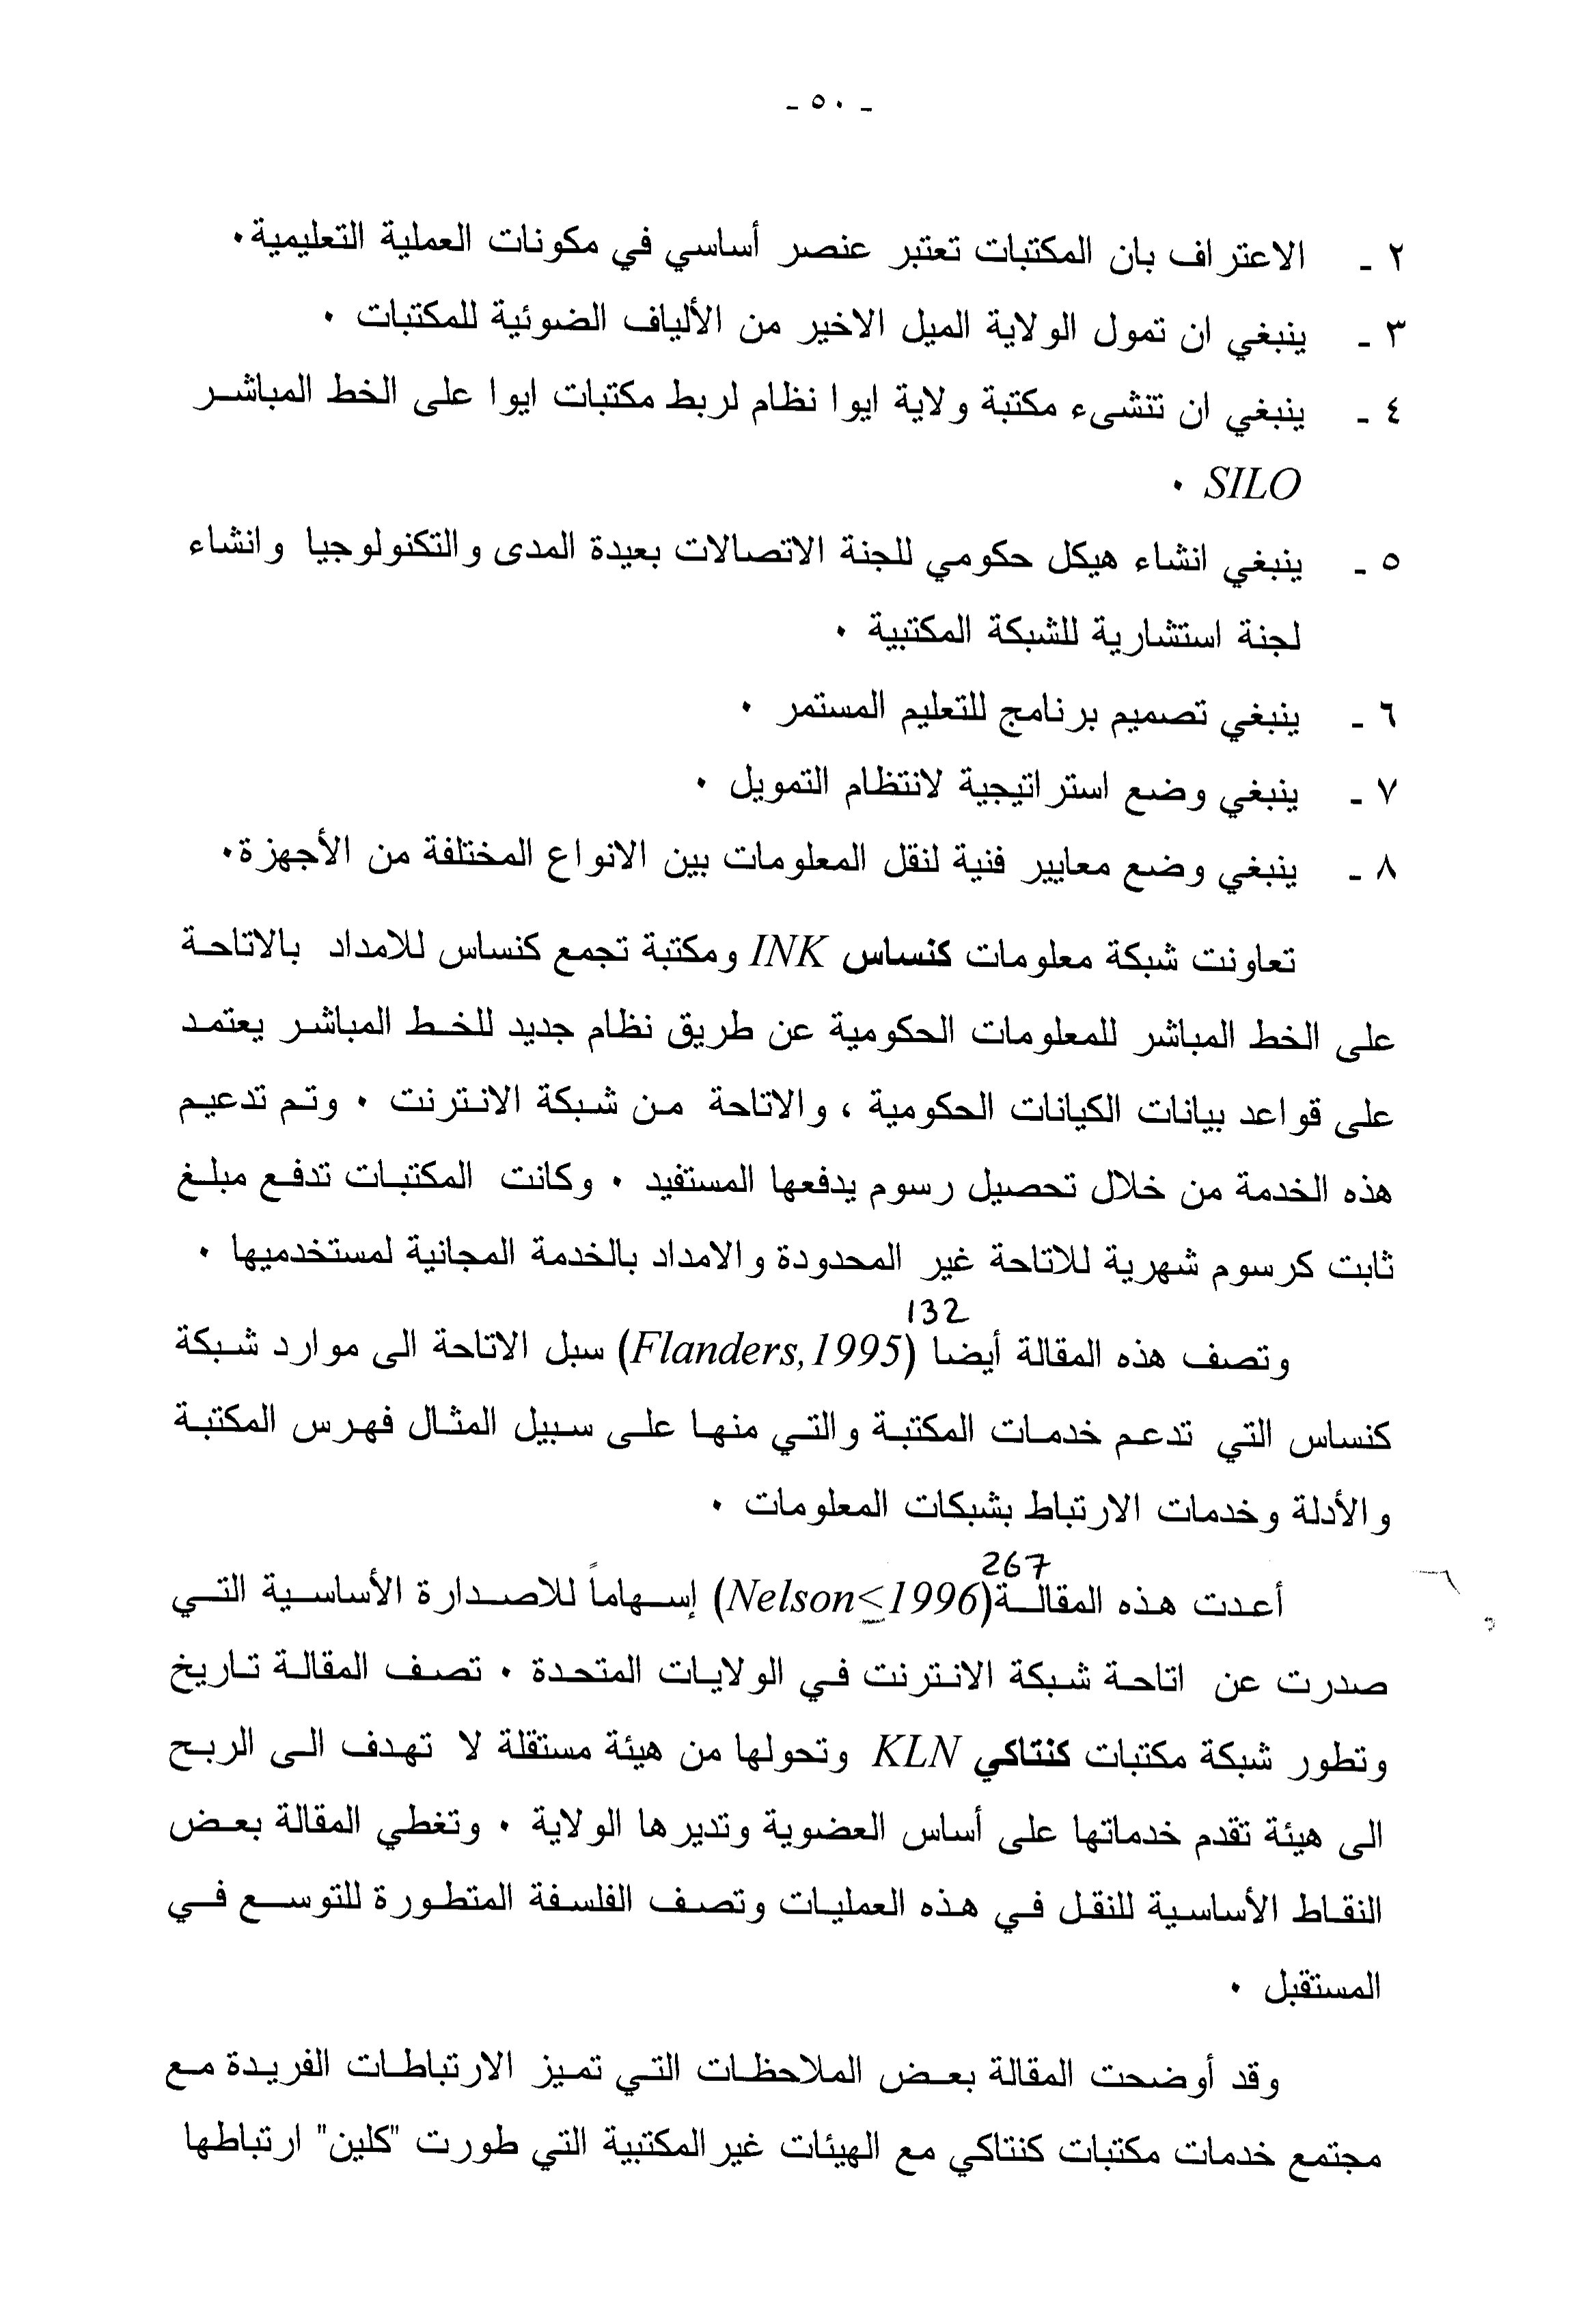 - ٥٠ -
٢ - الاعتراف بان المكتبات تعتبر عنصر أساسي في مكونات العملية التعليمية٠
٣ - ينبغي ان تمول الولاية الميل الاخير من الألياف الضوئية للمكتبات ٠
٤ - ينبغي ان تنشىء مكتبة ولاية ايوا نظام لربط مكتبات ايوا على الخط المباشر
SILO ٠
٥ - ينبغي انشاء هيكل حكومي للجنة الاتصالات بعيدة المدى والتكنولوجيا وانشاء
لجنة استشارية للشبكة المكتبية ٠
٦ - ينبغي تصميم برنامج للتعليم المستمر ٠
٧ - ينبغي وضع استراتيجية لانتظام التمويل ٠
٨ - ينبغي وضع معايير فنية لنقل المعلومات بين الانواع المختلفة من الأجهزة٠
تعاونت شبكة معلومات كنساس INK ومكتبة تجمع كنساس للامداد بالاتاحة
على الخط المباشر للمعلومات الحكومية عن طريق نظام جديد للخط المباشر يعتمد
على قواعد بيانات الكيانات الحكومية ، والاتاحة من شبكة الانترنت ٠ وتم تدعيم
هذه الخدمة من خلال تحصيل رسوم يدفعها المستفيد ٠ وكانت المكتبات تدفع مبلغ
ثابت كرسوم شهرية للاتاحة غير المحدودة والامداد بالخدمة المجانية لمستخدميها ٠
132
وتصف هذه المقالة أيضا (Flanders,1995) سبل الاتاحة الى موارد شبكة
كنساس التي تدعم خدمات المكتبة والتي منها على سبيل المثال فهرس المكتبة
والأدلة وخدمات الارتباط بشبكات المعلومات ٠
267
أعدت هذه المقالة(Nelson<1996) إسهاماً للاصدارة الأساسية التي
صدرت عن اتاحة شبكة الانترنت في الولايات المتحدة ٠ تصف المقالة تاريخ
وتطور شبكة مكتبات كنتاكي KLN وتحولها من هيئة مستقلة لا تهدف الى الربح
الى هيئة تقدم خدماتها على أساس العضوية وتديرها الولاية ٠ وتغطي المقالة بعض
النقاط الأساسية للنقل في هذه العمليات وتصف الفلسفة المتطورة للتوسع في
المستقبل ٠
وقد أوضحت المقالة بعض الملاحظات التي تميز الارتباطات الفريدة مع
مجتمع خدمات مكتبات كنتاكي مع الهيئات غير المكتبية التي طورت "كلين" ارتباطها